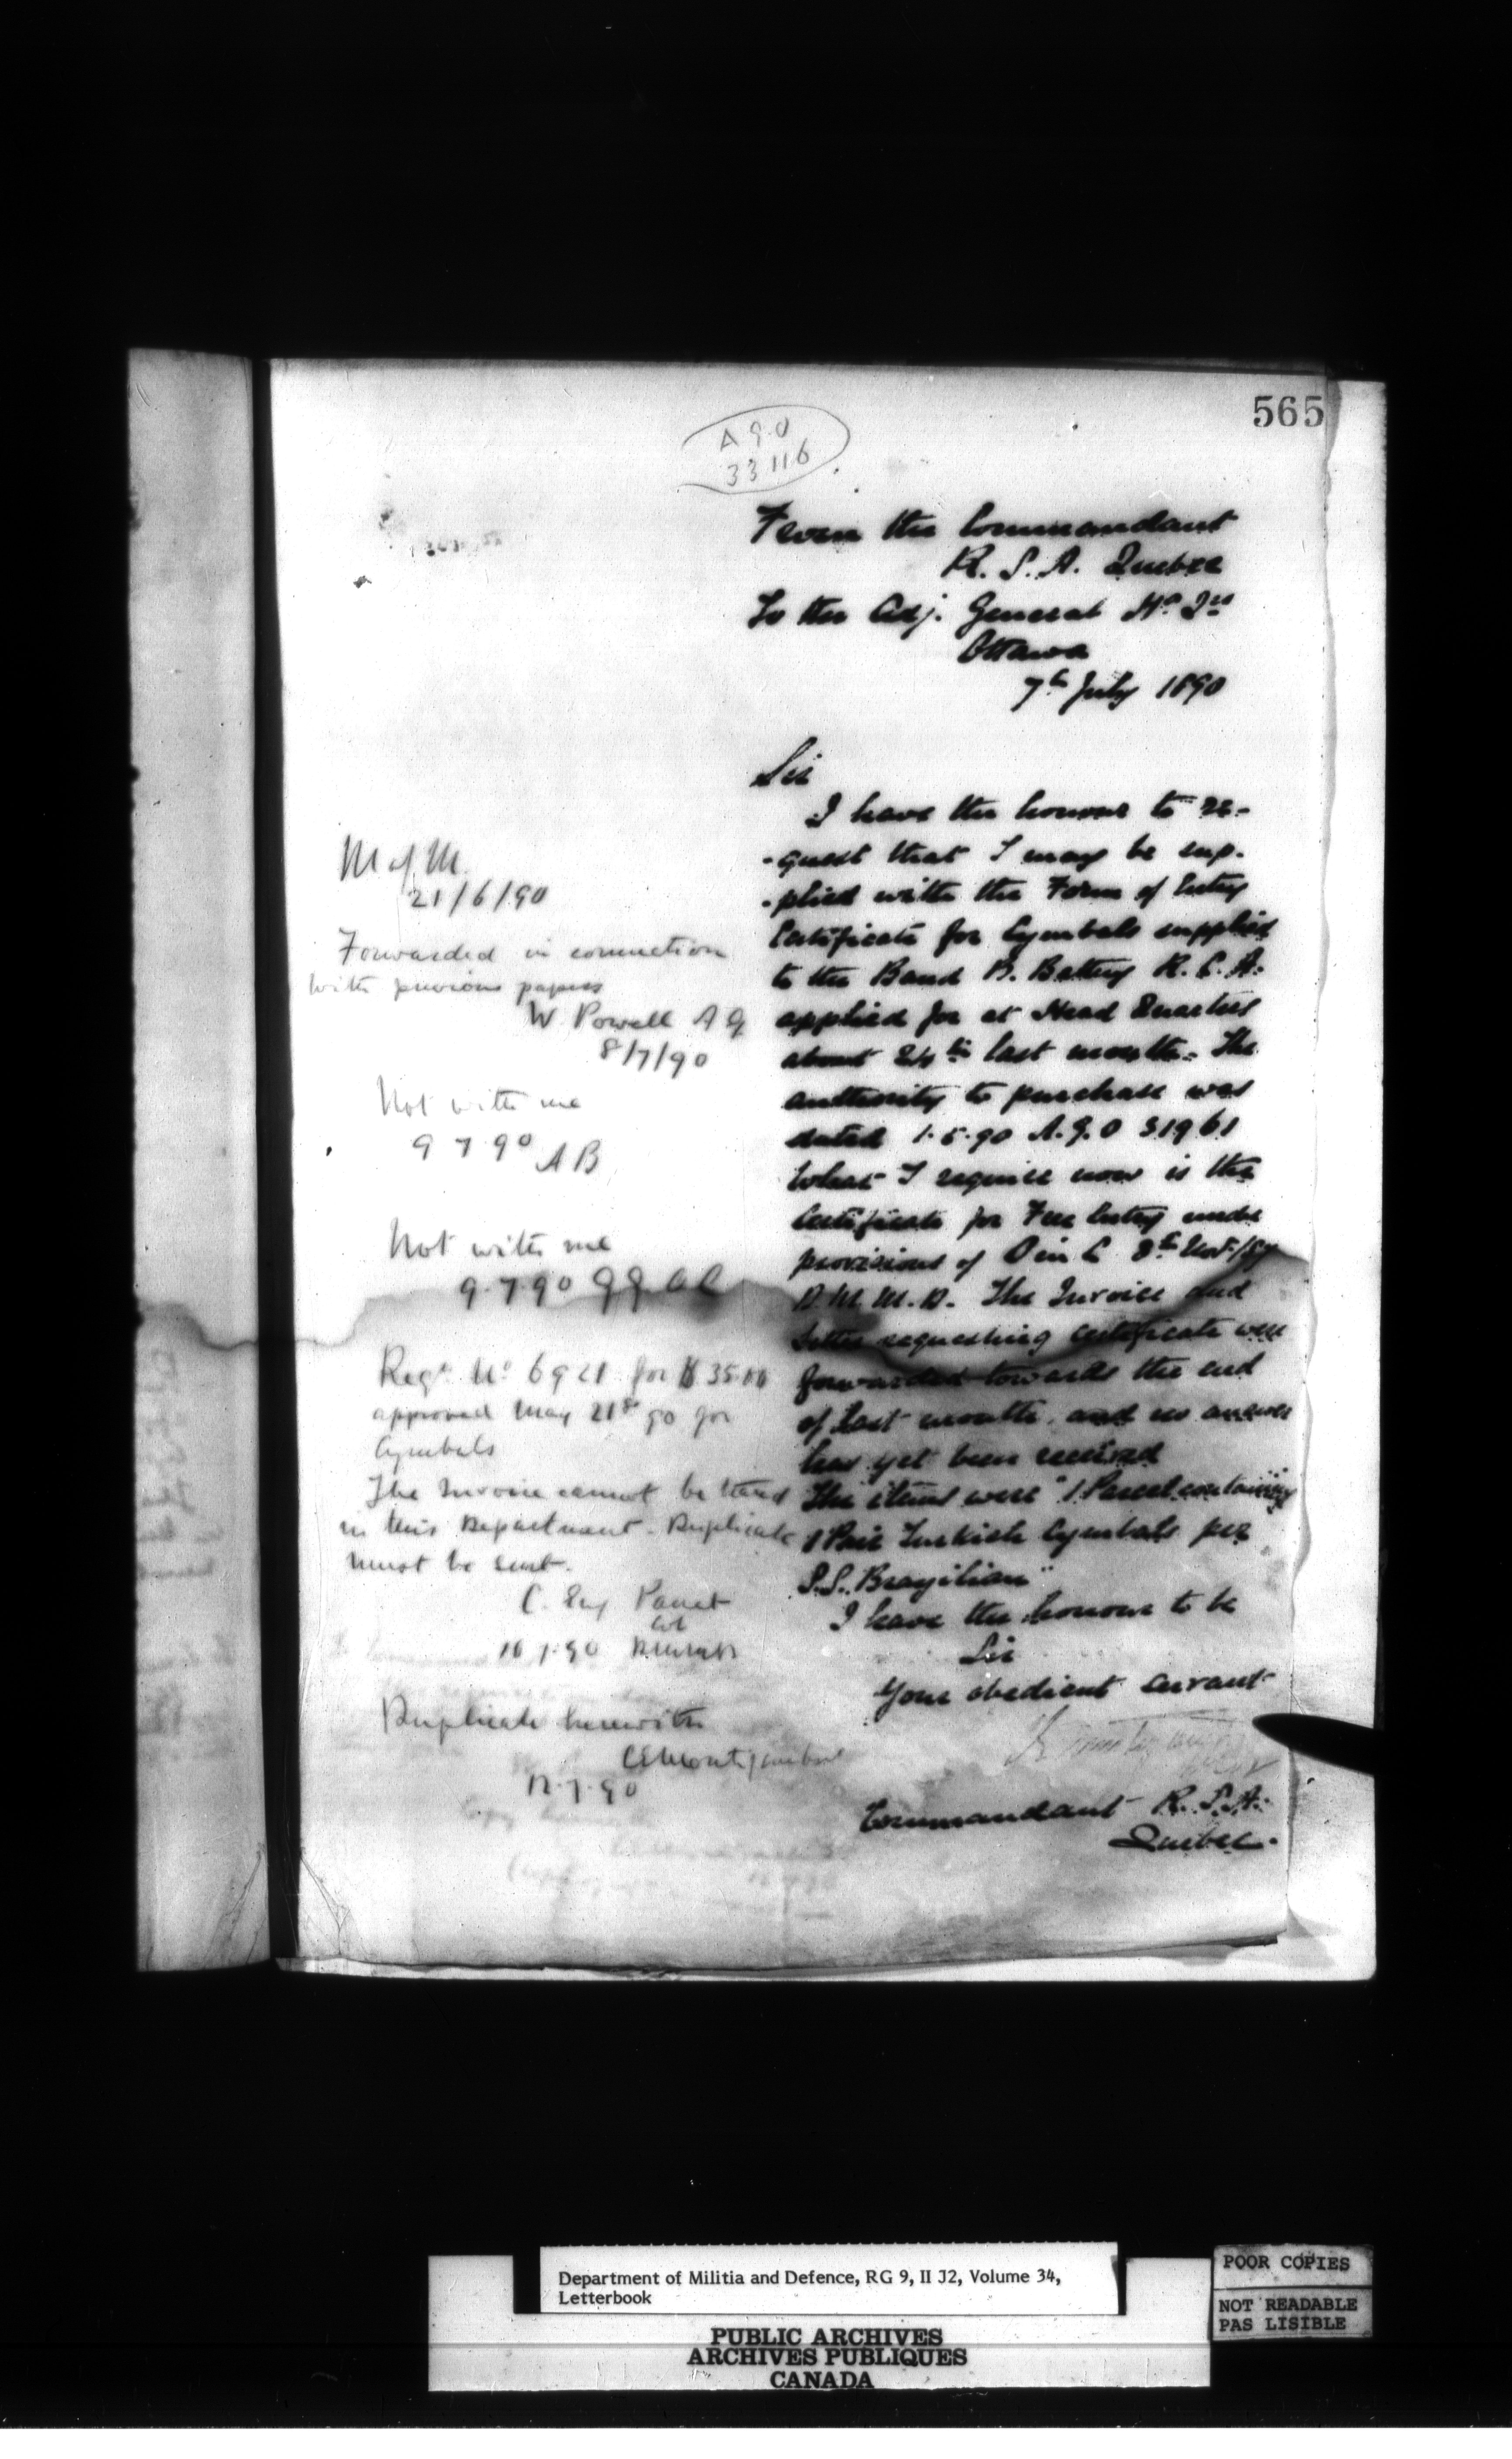 565
A G O
33116
From the Commandant
R. S. A. Quebec
To the Adj. General Hd Qrs
Ottawa
7th July 1890
Sir
I have the honour to re-
-quest that I may be sup-
-plied with the Form of Entry
Certificate for Cymbals supplied
to the Band B. Battery R. C. A.
applied for at Head Quarters
about 24th last month. The
authority to purchase was
dated 1.5.90 A.G.O 31961
What I require now is the
Certificate for Free Entry under
provisions of O in C 8th Nov./89
D. M. M. D. The Invoice and
letter requesting certificate were
forwarded towards the end
of last month, and no answer
has yet been received
The items were "1 Parcel containing
1 Pair Turkish Cymbals per
S.S. Brazilian"
I have the honour to be
Sir
Your obedient Servant
Commandant R. S. A.
Quebec.
M of M.
21/6/90
Forwarded in connection
with previous papers
W. Powell A G
8/7/90
Not with me
9 7 90 A B
Not with me
9.7.90
Reqn No 6921 for $35.00
approved May 21st 90 for
Cymbals
The Invoice cannot be traced
in this Department. Duplicate
must be sent.
C. Eug Panet
Col
10.7.90
Duplicate herewith
CEMontizambert
12.7.90
Department of Militia and Defence, RG 9, II J2, Volume 34,
Letterbook
PUBLIC ARCHIVES
ARCHIVES PUBLIQUES
CANADA
POOR COPIES
NOT READABLE
PAS LISIBLE